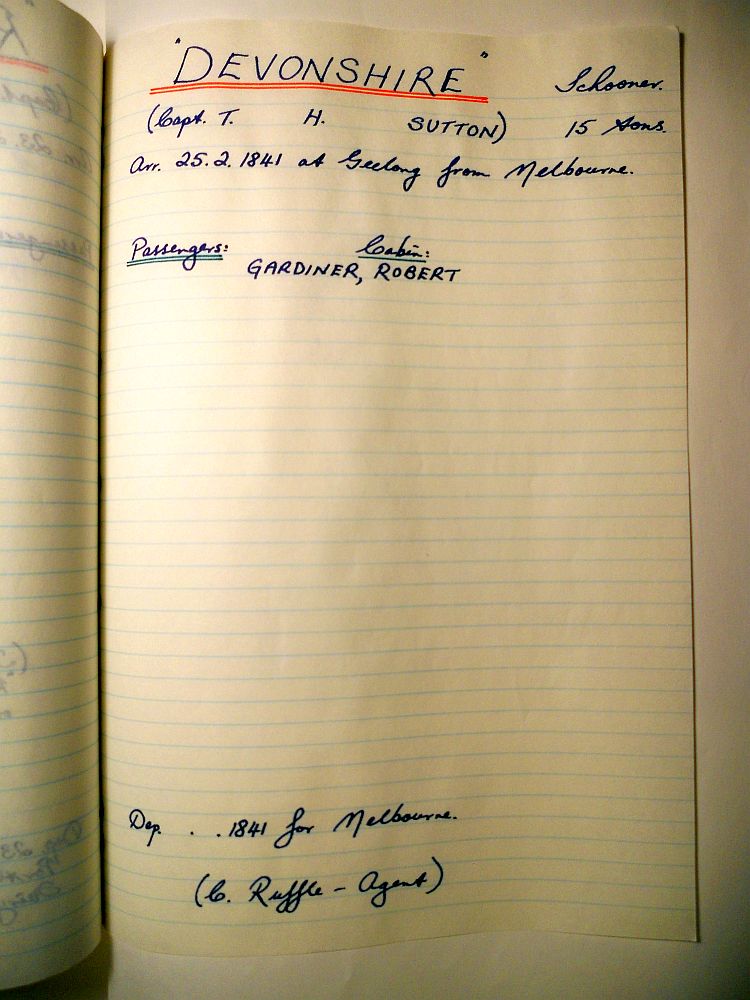 "DEVONSHIRE" Schooner.
(Capt. T. H. SUTTON) 15 tons.
Arr. 25.2.1841 at Geelong from Melbourne.
Passengers: Cabin:
GARDINER, ROBERT
Dep. . . 1841 for Melbourne.
(C. Ruffle - Agent)